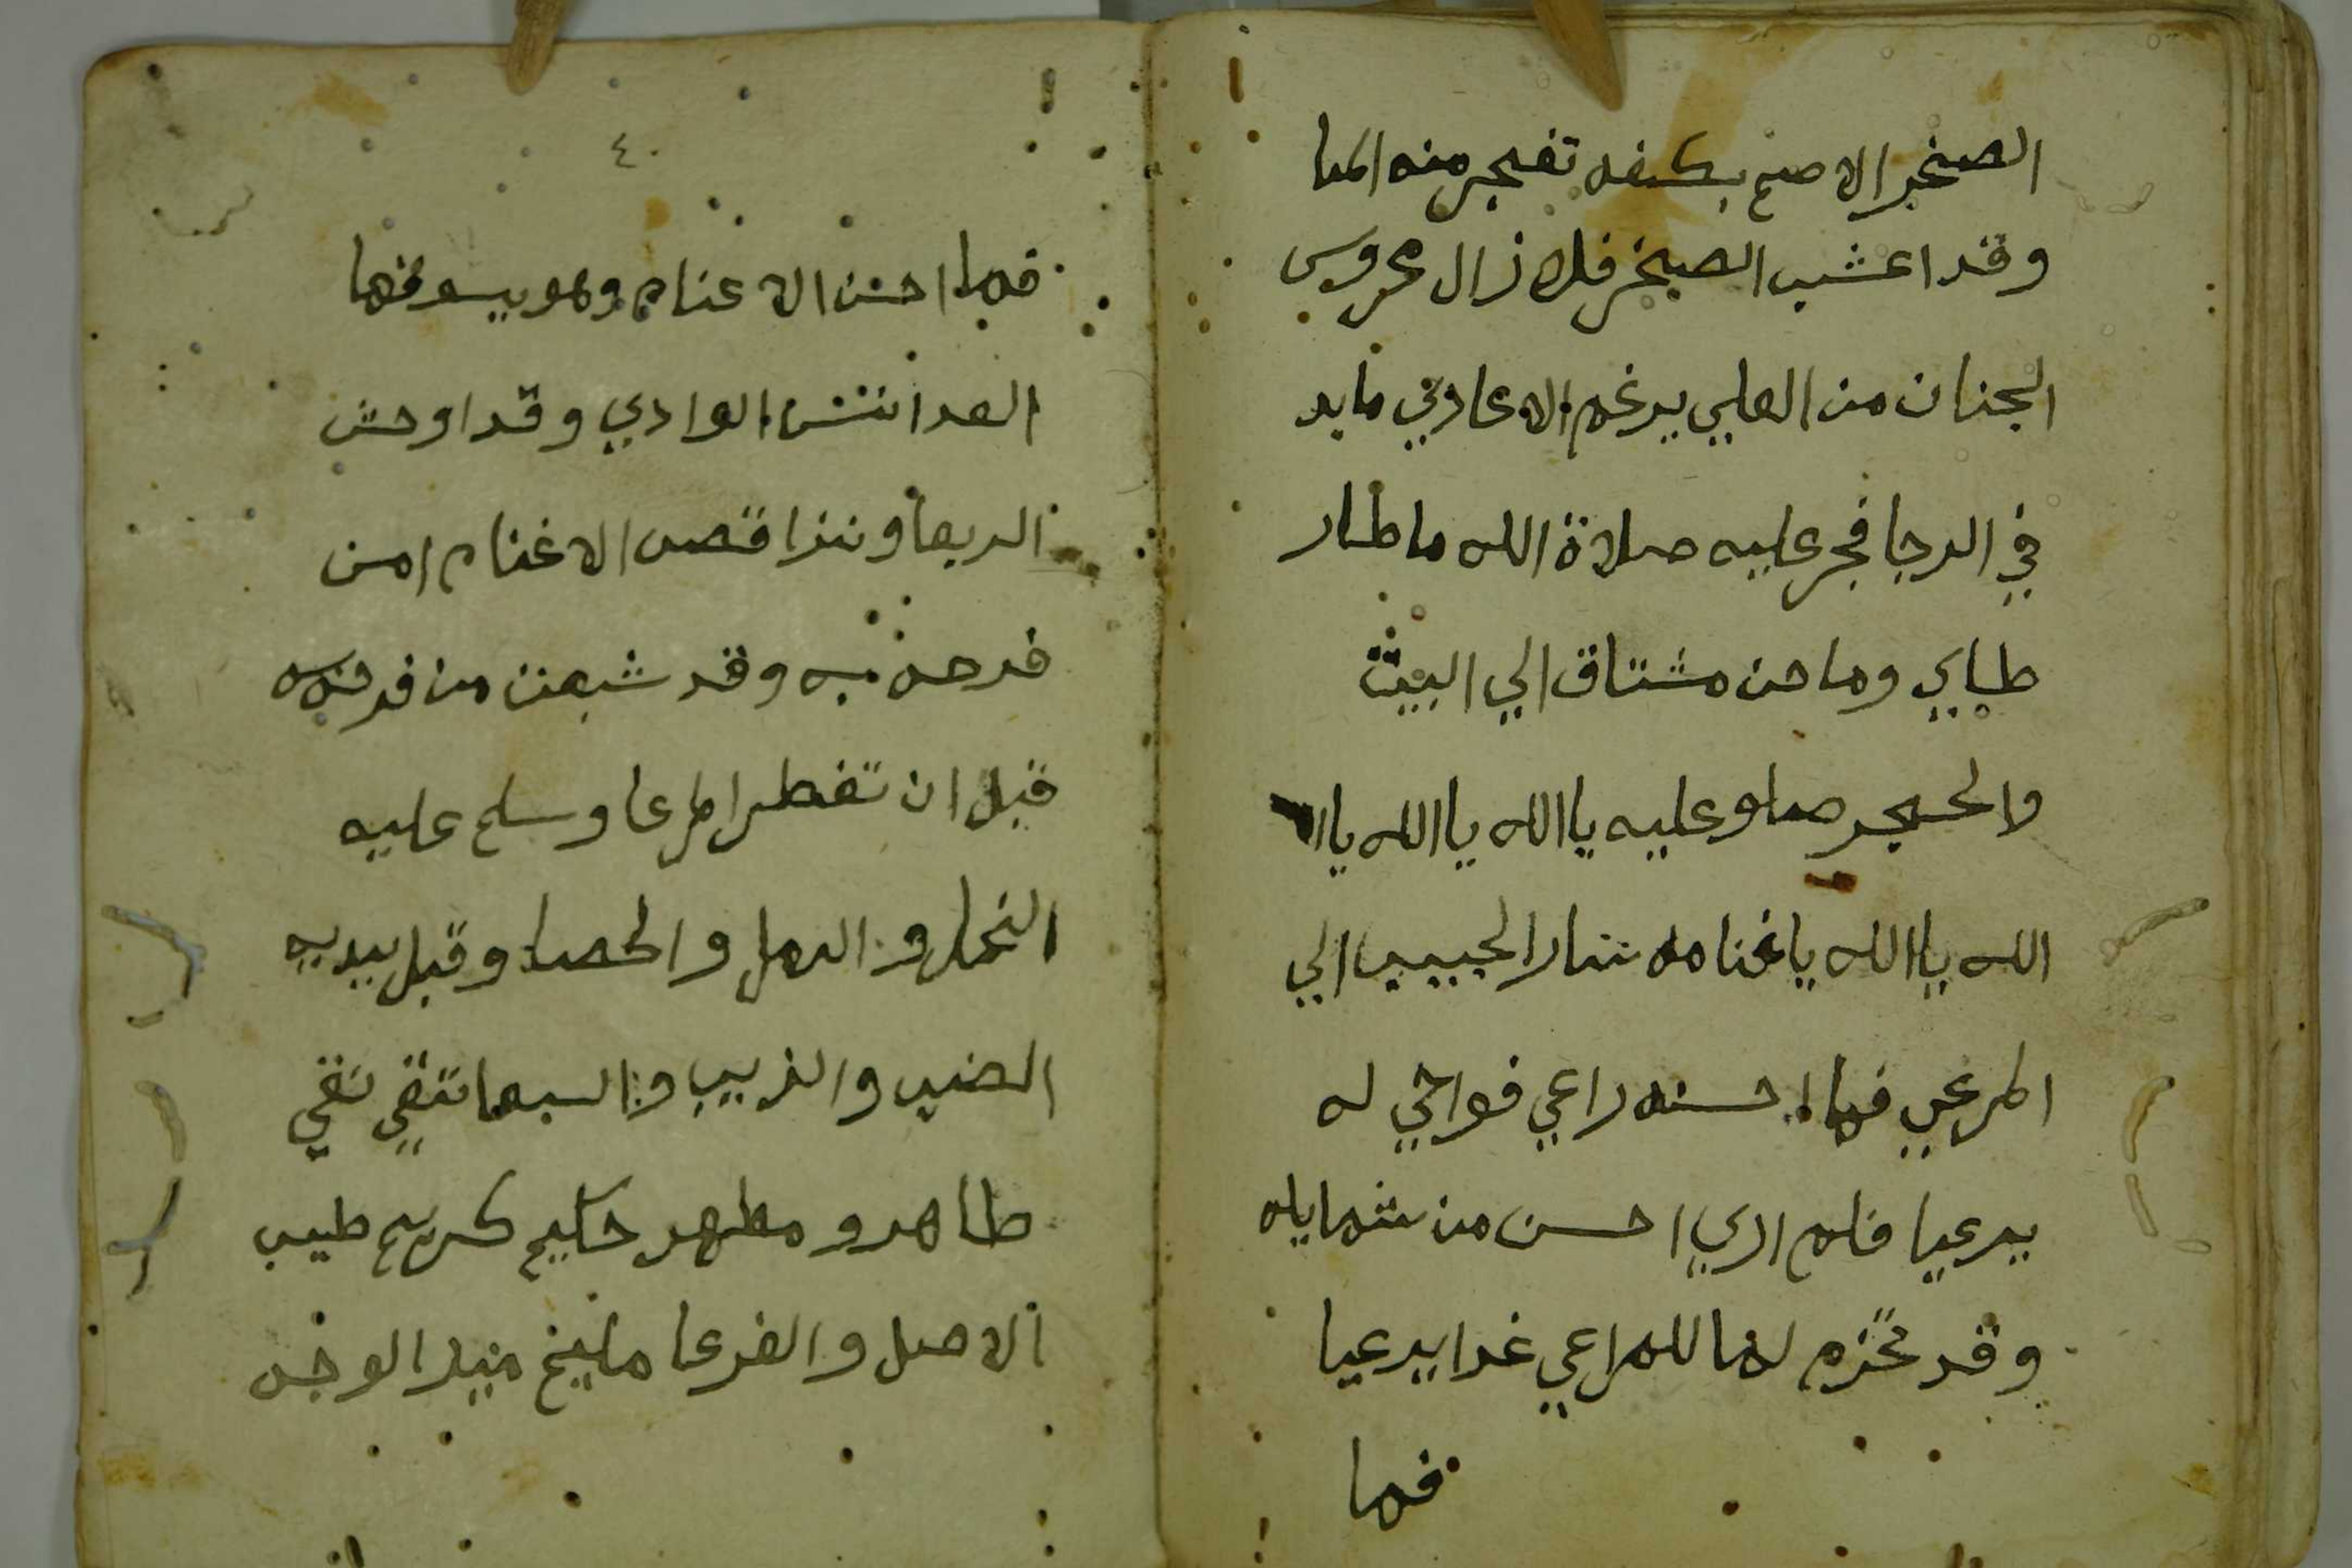 الصخر الاصم بكفه تفجر منه الما
وقد اعشب الصخر فلا زال محروس
الجنان من العلي يرغم الاعادي مابد
في الدجا فجر عليه صلاة الله ما طار
طاير وما حن مشتاق الي البيت
والحجر صلو عليه يا الله يا الله يا ا
الله يا الله يا غنامه سار الحبيب الي
المرعي فما احسنه راعي فواخي له
يرعيا فلم اري احسن من شمايله
وقد محزم لنا للمراعي غدا يرعيا
فما
٤٠
فما احسن الاغنام وهو يسوقها
لقد انس الوادي وقد اوحش
الربعا ونذا قصص الاغنام من
فرحة به وقد شبعت من فرحه
قبل ان تفطر المرعا وسلم عليه
النمل والرمل والحصا وقبل يديه
الضب والذيب والسبعا تقي نقي
طاهر ومطهر حكيم كريم طيب
الاصل والفرعا مليح منير الوجه